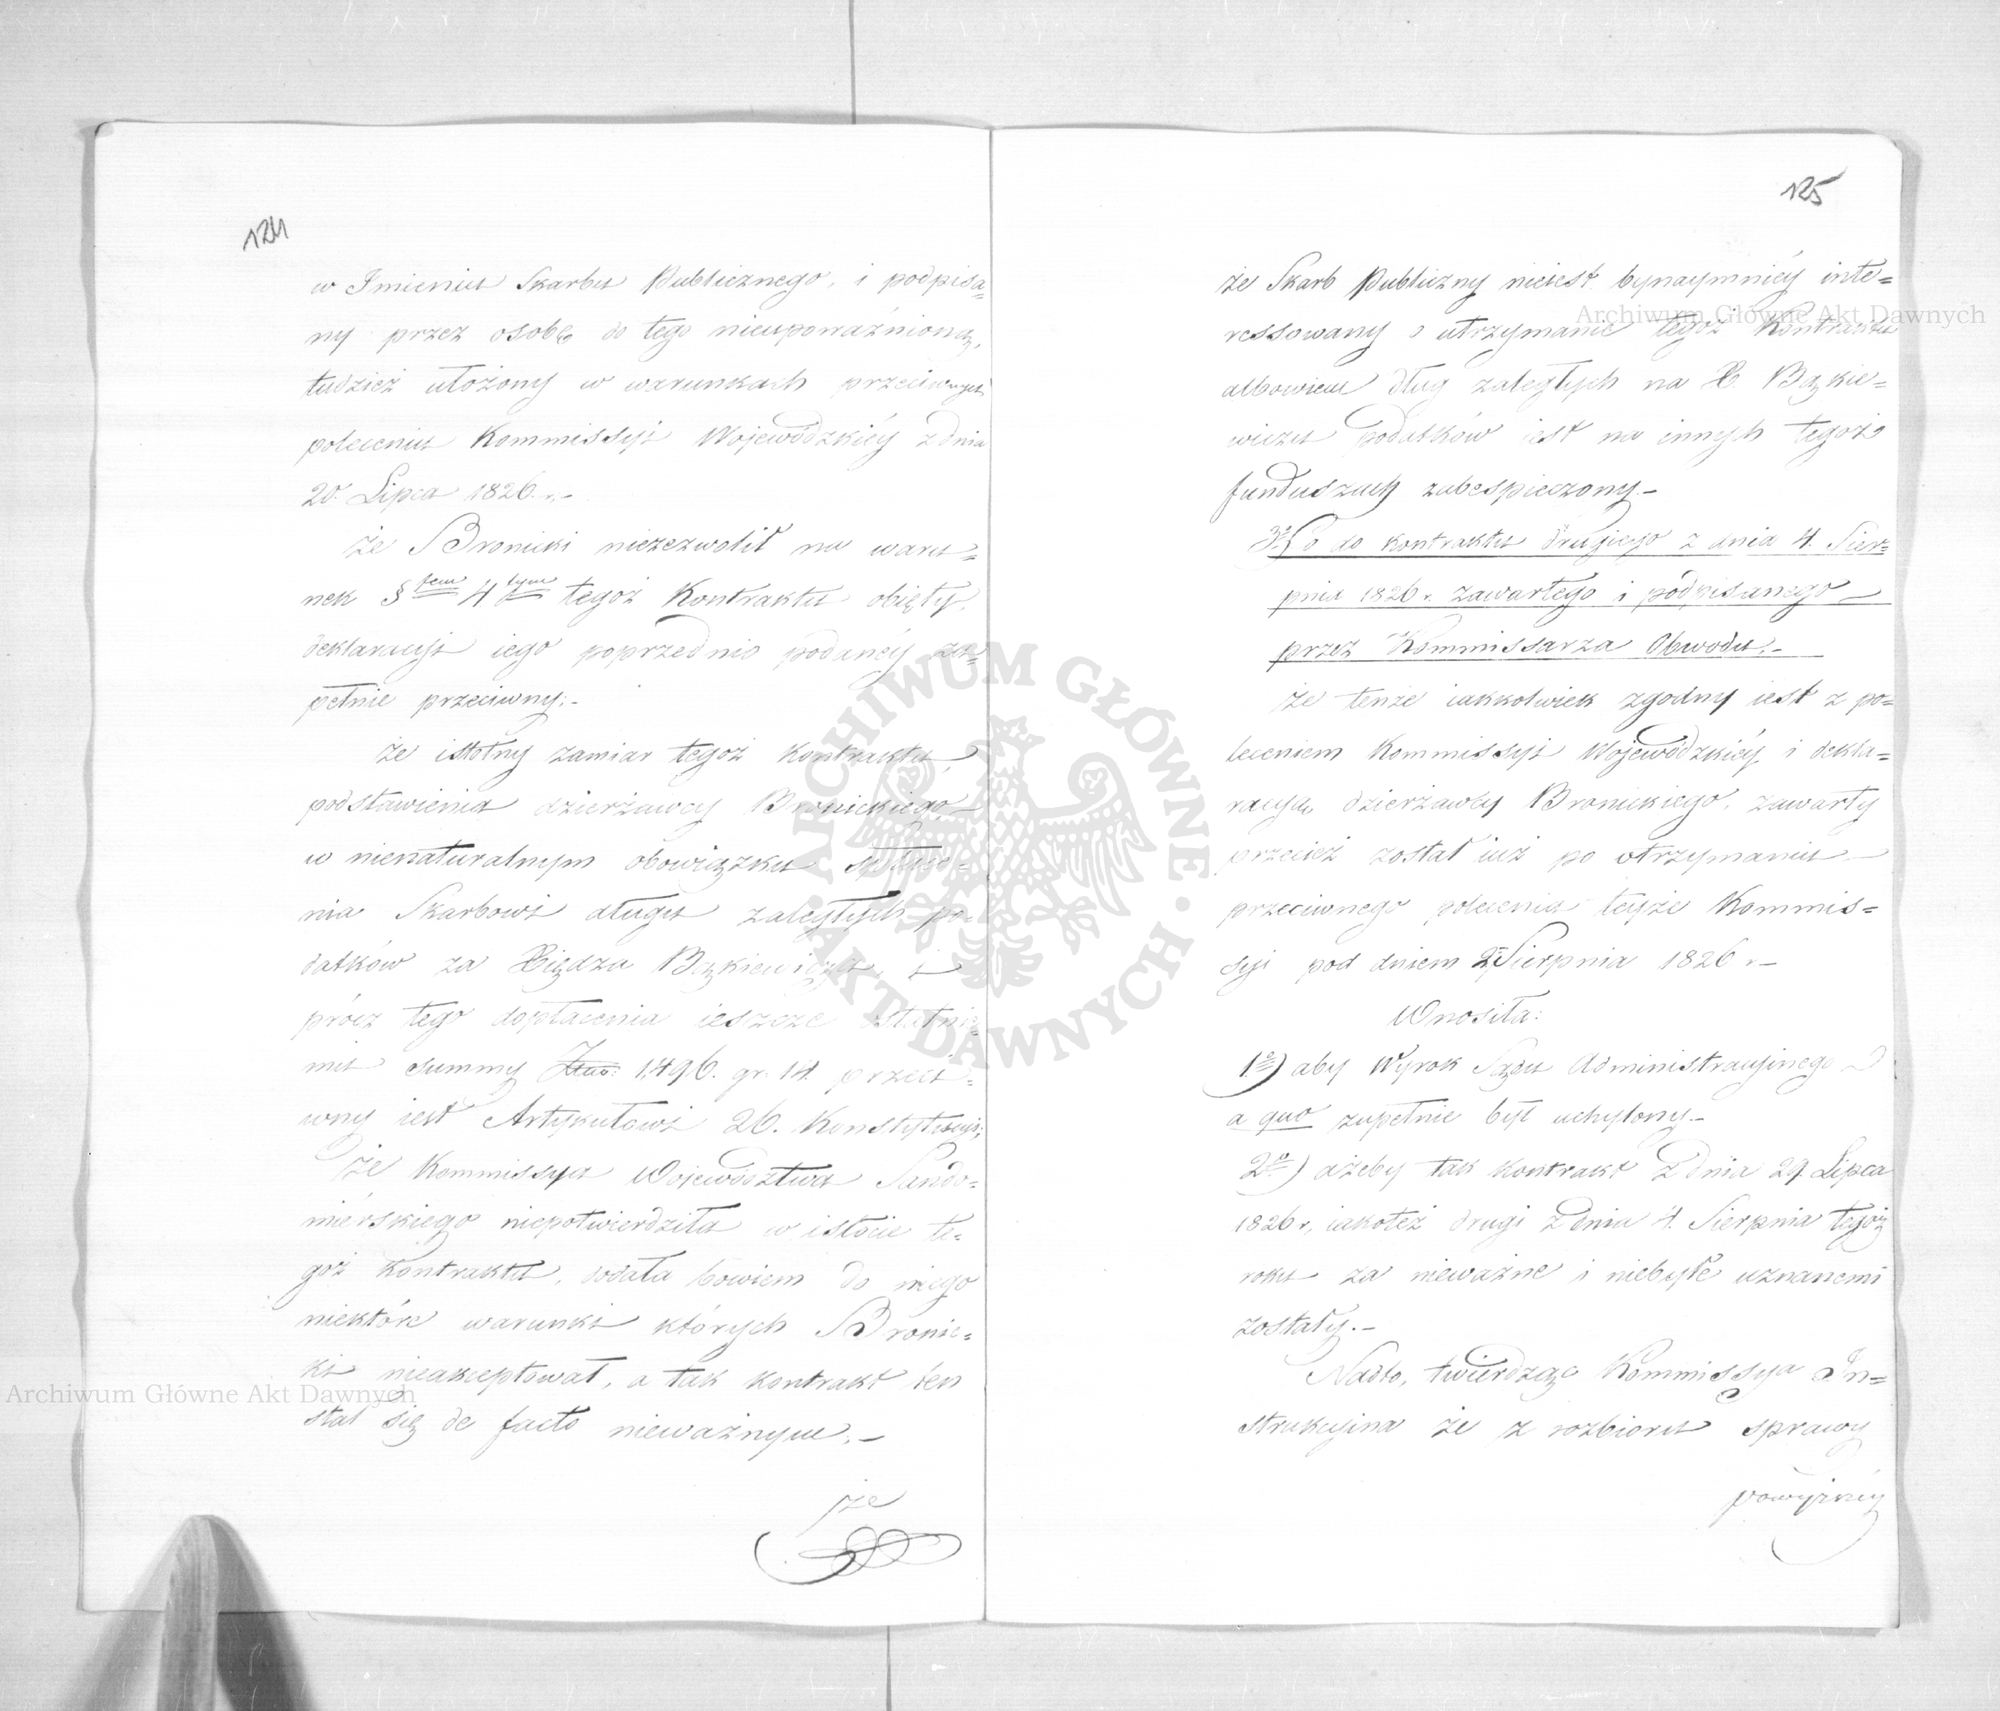 124
w Imieniu Skarbu Publicznego, i podpisa=
ny przez osobę do tego nieupoważnioną,
tudzież ułożony w warunkach przeciwnych
poleceniu Kommissyi Wojewódzkiéy z dnia
20. Lipca 1826. r. –
Że Bronicki niezezwolił na waru=
nek §tem 4tym tegoż Kontraktu obięty,
deklaracyi iego poprzednio podanéy zu=
pełnie przeciwny; –
że istotny zamiar tegoż Kontraktu,
podstawienia dzierżawcy Bronickiego
w nienaturalnym obowiązku spłace=
nia Skarbowi długu zaległych po=
datków za Xiędza Bązkiewicza, i
prócz tego dopłacenia ieszcze ostatnie=
mu summy Złp: 1,496. gr. 14. przeci=
wny iest Artykułowi 26. Konstytucyi;
Że Kommissya Województwa Sando=
mierskiego niepotwierdziła w istocie te=
goż Kontraktu, dodała bowiem do niego
niektóre warunki których Bronic=
ki nieakceptował, a tak kontrakt ten
stał się de facto nieważnym. –
że
125
że Skarb Publiczny nieiest bynaymniéy inte=
ressowany o utrzymanie tegoż Kontraktu
albowiem dług zaległych na X. Bązkie=
wiczu podatków iest na innych tegoż
funduszach zabespieczony –
3o) Co do kontraktu drugiego z dnia 4. Sier=
pnia 1826 r. zawartego i podpisanego –
przez Kommissarza Obwodu. –
że tenże iakkolwiek zgodny iest z po=
leceniem Kommissyi Wojewódzkiéy i dekla=
racyą dzierżawcy Bronickiego, zawarty
przecież został iuż po otrzymaniu –
przeciwnego polecenia teyże Kommis=
syi pod dniem 2 Sierpnia 1826 r –
Wnosiła:
1o) aby Wyrok Sądu Administracyinego
a quo zupełnie był uchylony –
2o) ażeby tak kontrakt z dnia 29. Lipca
1826 r, iakoteż drugi z dnia 4. Sierpnia tegoż
roku za nieważne i niebyłe uznanemi
zostały. –
Nadto, twierdząc Kommissya In=
strukcyina że z rozbioru sprawy
powyższéy
Archiwum Główne Akt Dawnych
Archiwum Główne Akt Dawnych
ARCHIWUM GŁÓWNE · AKT DAWNYCH ·